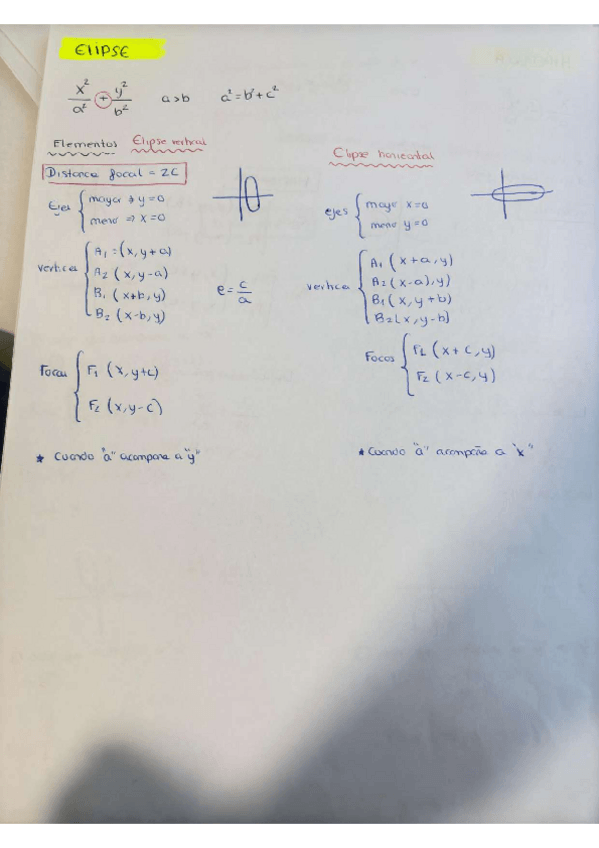 ELIPSE
x²/a² + y²/b² a>b a²=b²+c²
Elementos Elipse vertical
Distancia focal = 2c
Ejes { mayor → y=0
meno ⇒ x=0
vertices { A₁=(x, y+a)
A₂ (x, y-a)
B₁ (x+b, y)
B₂ (x-b, y)
e = c/a
Focos { F₁ (x, y+c)
F₂ (x, y-c)
* Cuando "a" acompaña a "y"
Elipse horizontal
ejes { mayo x=0
meno y=0
vertice { A₁ (x+a, y)
A₂ (x-a), y)
B₁ (x, y+b)
B₂ (x, y-b)
Focos { F₁ (x+c, y)
F₂ (x-c, y)
* Cuando "a" acompaña a "x"